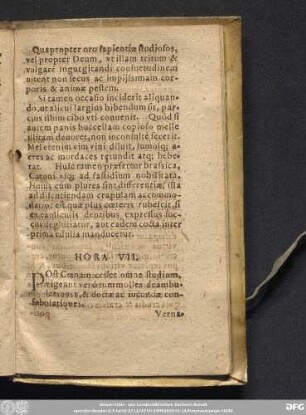 Quapropter oro sapientiæ studiosos,
vel propter Deum, vt illam tritam &
vulgarē ingurgitandi consuetudinem
vitent non secus ac ipsissimam cor-
poris & animæ pestem.
Si tamen occasio inciderit aliquan-
do, ut alicui largius bibendum sit, par-
cius illum cibo vti convenit. Quòd si
autem panis buccellam copioso melle
illitam devoret, non inconsultè fecerit.
Mel enim vim vini diluit, fumosq; a-
cres ac mordaces retundit atq; hebe-
tat. Huic tamen præfertur brassica,
Catoni usq; ad fastidium nobilitata.
Hujus cum plures sint differentiæ, illa
ad discutiendam crapulam accommo-
datior est quæ plus cæteris rubescit, si
ex cauliculis dentibus expressus suc-
cus deglutiatur, aut eadem cocta inter
prima edulia manducetur.
HORA VII.
POst Cœnam cesset omne studium,
vigeant verò summolles deambu-
lationes, & doctæ ac iucundæ con-
fabulationes.
Verna-